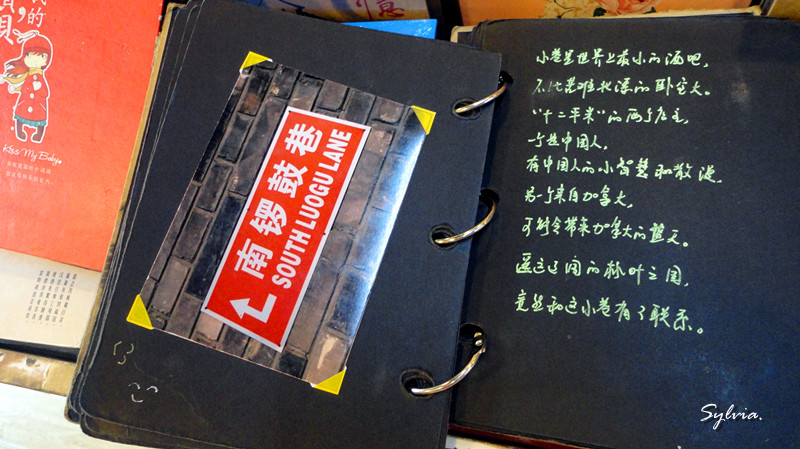 的
Kiss My Baby
南锣鼓巷
SOUTH LUOGU LANE
小巷是世界上最小的酒吧，
不比北漂的卧室大。
“十二平米”的两个店主，
一个是中国人，
有中国人的小智慧和散漫，
另一个来自加拿大，
可带来加拿大的蓝天。
遥远辽阔的枫叶之国，
竟然和这小巷有了联系。
Sylvia.